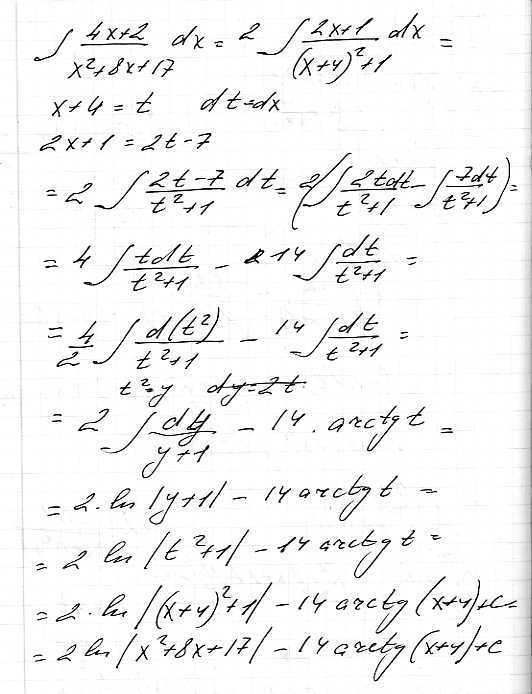 ∫ (4x+2)/(x²+8x+17) dx = 2 ∫ (2x+1)/((x+4)²+1) dx =
x+4 = t dt=dx
2x+1 = 2t-7
= 2 ∫ (2t-7)/(t²+1) dt = 2(∫ 2tdt/(t²+1) - ∫ 7dt/(t²+1)) =
= 4 ∫ tdt/(t²+1) - 14 ∫ dt/(t²+1) =
= 4/2 ∫ d(t²)/(t²+1) - 14 ∫ dt/(t²+1) =
t²=y dy=2t
= 2 ∫ dy/(y+1) - 14 · arctg t =
= 2 · ln |y+1| - 14 arctg t =
= 2 ln |t²+1| - 14 arctg t =
= 2 · ln |(x+4)²+1| - 14 arctg (x+4)+c=
= 2 ln |x²+8x+17| - 14 arctg (x+4)+c